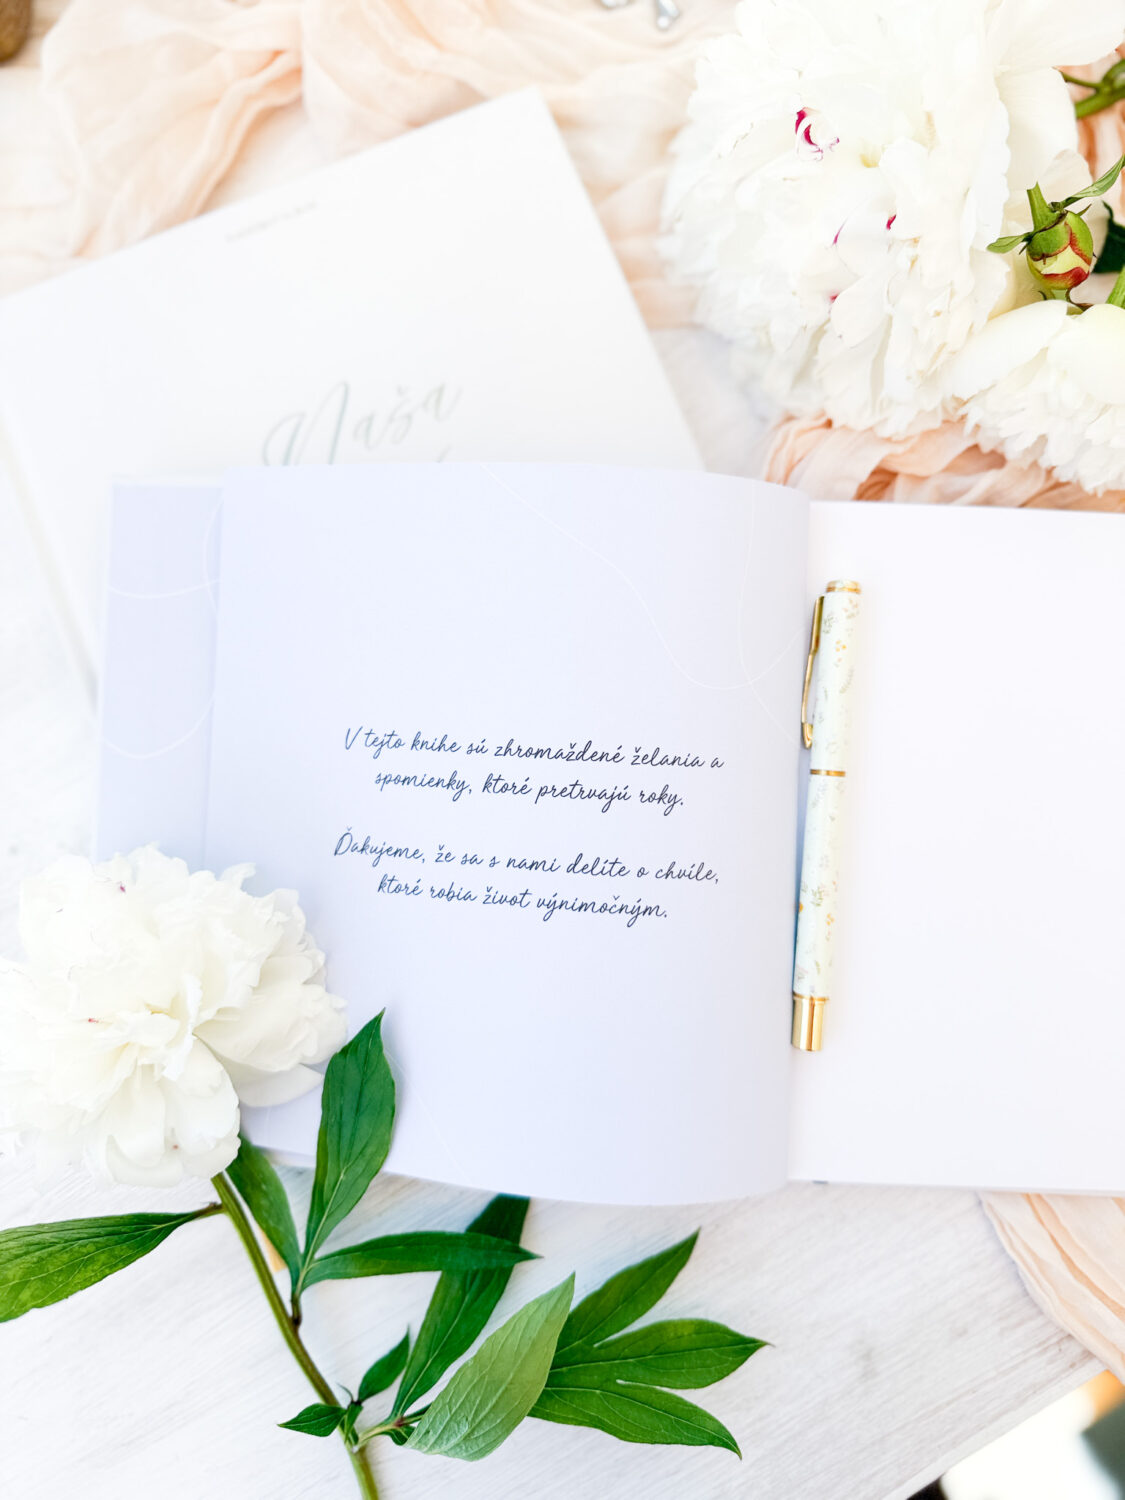 Naša
V tejto knihe sú zhromaždené želania a
spomienky, ktoré pretrvajú roky.
Ďakujeme, že sa s nami delíte o chvíle,
ktoré robia život výnimočným.